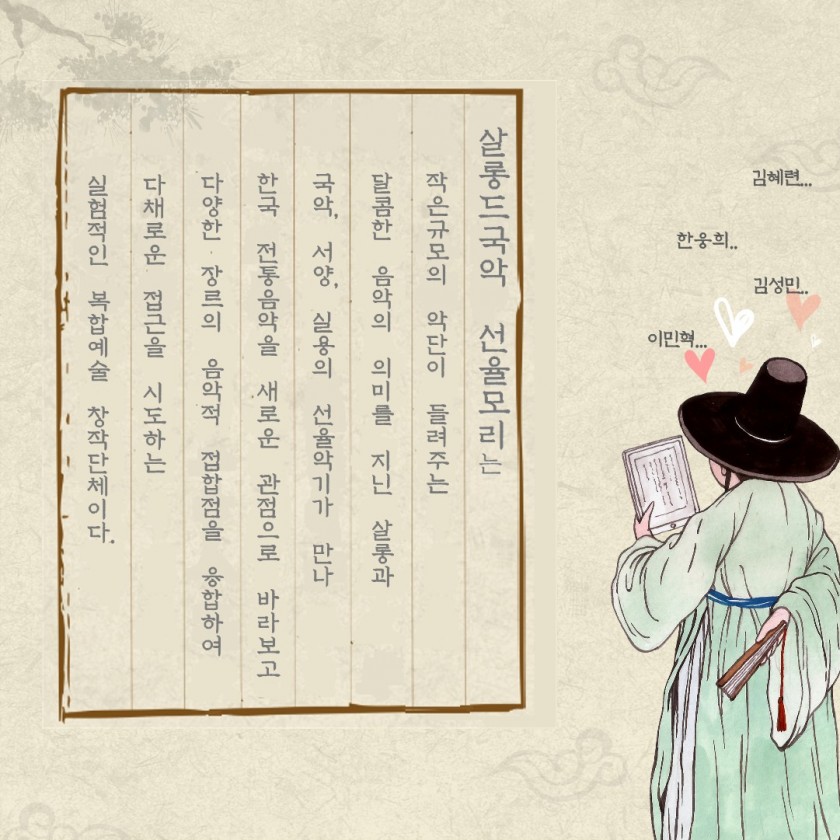 살롱드국악 선율모리는
작은규모의 악단이 들려주는
달콤한 음악의 의미를 지닌 살롱과
국악, 서양, 실용의 선율악기가 만나
한국 전통음악을 새로운 관점으로 바라보고
다양한 장르의 음악적 접합점을 융합하여
다채로운 접근을 시도하는
실험적인 복합예술 창작단체이다.
김혜련...
한웅희..
김성민..
이민혁...